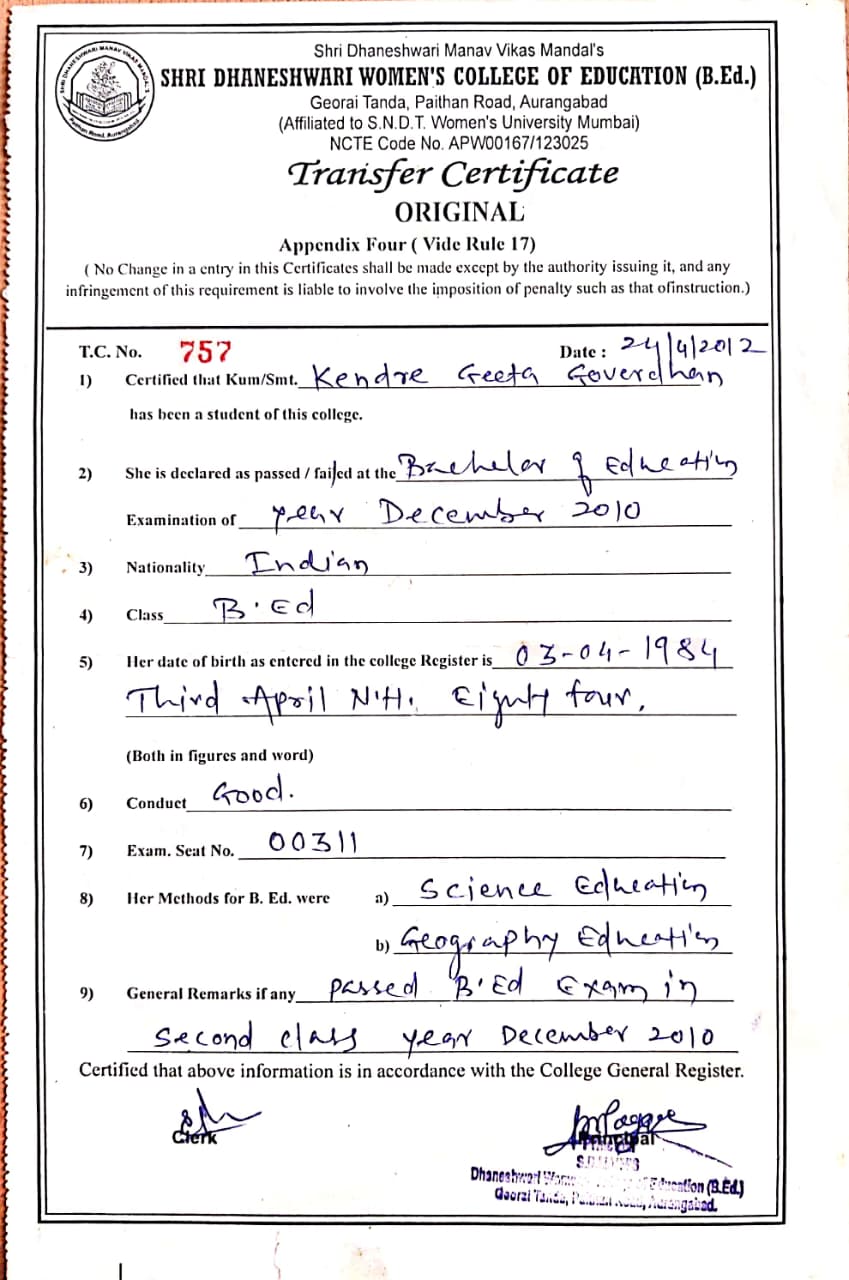 SHRI DHANESHWARI MANAV VIKAS MANDAL'S
Paithan Road, Aurangabad
Shri Dhaneshwari Manav Vikas Mandal's
SHRI DHANESHWARI WOMEN'S COLLEGE OF EDUCATION (B.Ed.)
Georai Tanda, Paithan Road, Aurangabad
(Affiliated to S.N.D.T. Women's University Mumbai)
NCTE Code No. APW00167/123025
Transfer Certificate
ORIGINAL
Appendix Four ( Vide Rule 17)
( No Change in a entry in this Certificates shall be made except by the authority issuing it, and any
infringement of this requirement is liable to involve the imposition of penalty such as that ofinstruction.)
T.C. No. 757 Date : 24/4/2012
1) Certified that Kum/Smt. Kendre Geeta Goverdhan
has been a student of this college.
2) She is declared as passed / failed at the Bachelor of Education
Examination of year December 2010
3) Nationality Indian
4) Class B.Ed
5) Her date of birth as entered in the college Register is 03-04-1984
Third April N.H. Eighty four.
(Both in figures and word)
6) Conduct Good.
7) Exam. Seat No. 00311
8) Her Methods for B. Ed. were a) Science Education
b) Geography Education
9) General Remarks if any passed B.Ed Exam in
Second class year December 2010
Certified that above information is in accordance with the College General Register.
Clerk
Principal
Dhaneshwari Women's College of Education (B.Ed.)
Georai Tanda, Paithan Road, Aurangabad.